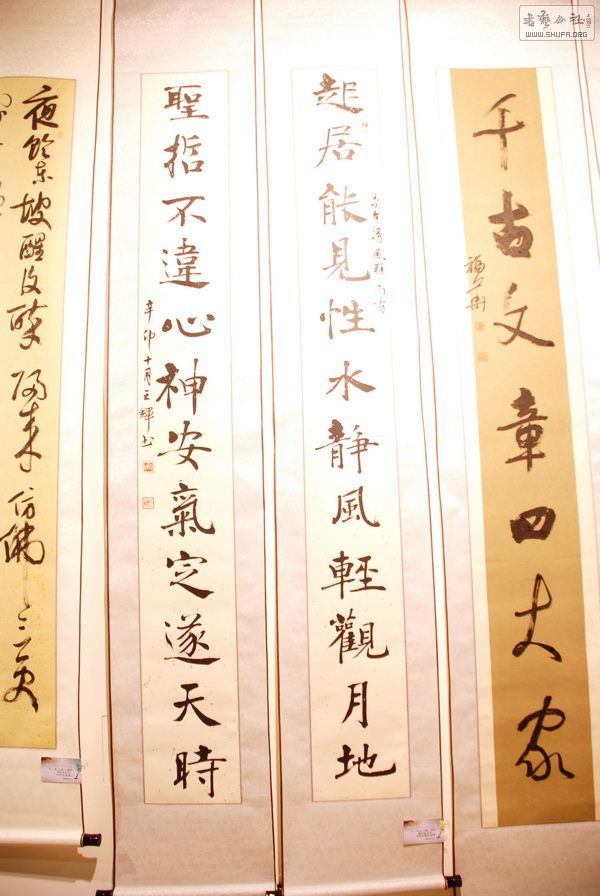 書藝公社
WWW.SHUFA.ORG
千古文章四大家
起居能見性水静風輕觀月地
聖哲不違心神安氣定遂天時
辛卯十月王輝书
夜飲東坡醒復醉歸來仿佛三更